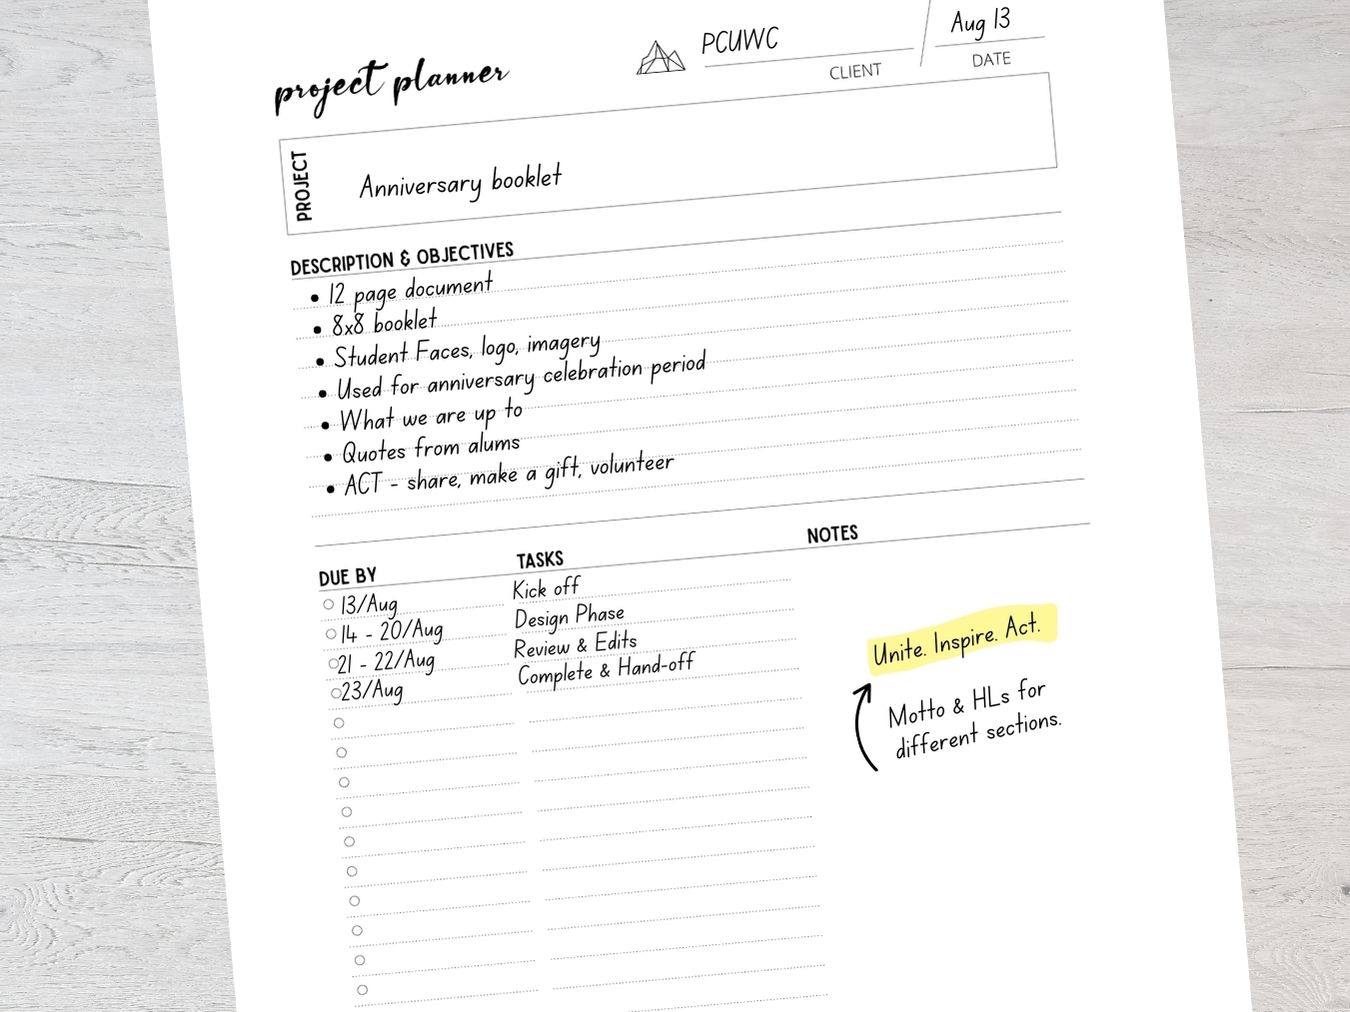 project planner
PCUWC
CLIENT
Aug 13
DATE
PROJECT
Anniversary booklet
DESCRIPTION & OBJECTIVES
• 12 page document
• 8x8 booklet
• Student Faces, logo, imagery
• Used for anniversary celebration period
• What we are up to
• Quotes from alums
• ACT - share, make a gift, volunteer
DUE BY
TASKS
13/Aug
Kick off
14 - 20/Aug
Design Phase
21 - 22/Aug
Review & Edits
23/Aug
Complete & Hand-off
NOTES
Unite. Inspire. Act.
Motto & HLs for
different sections.